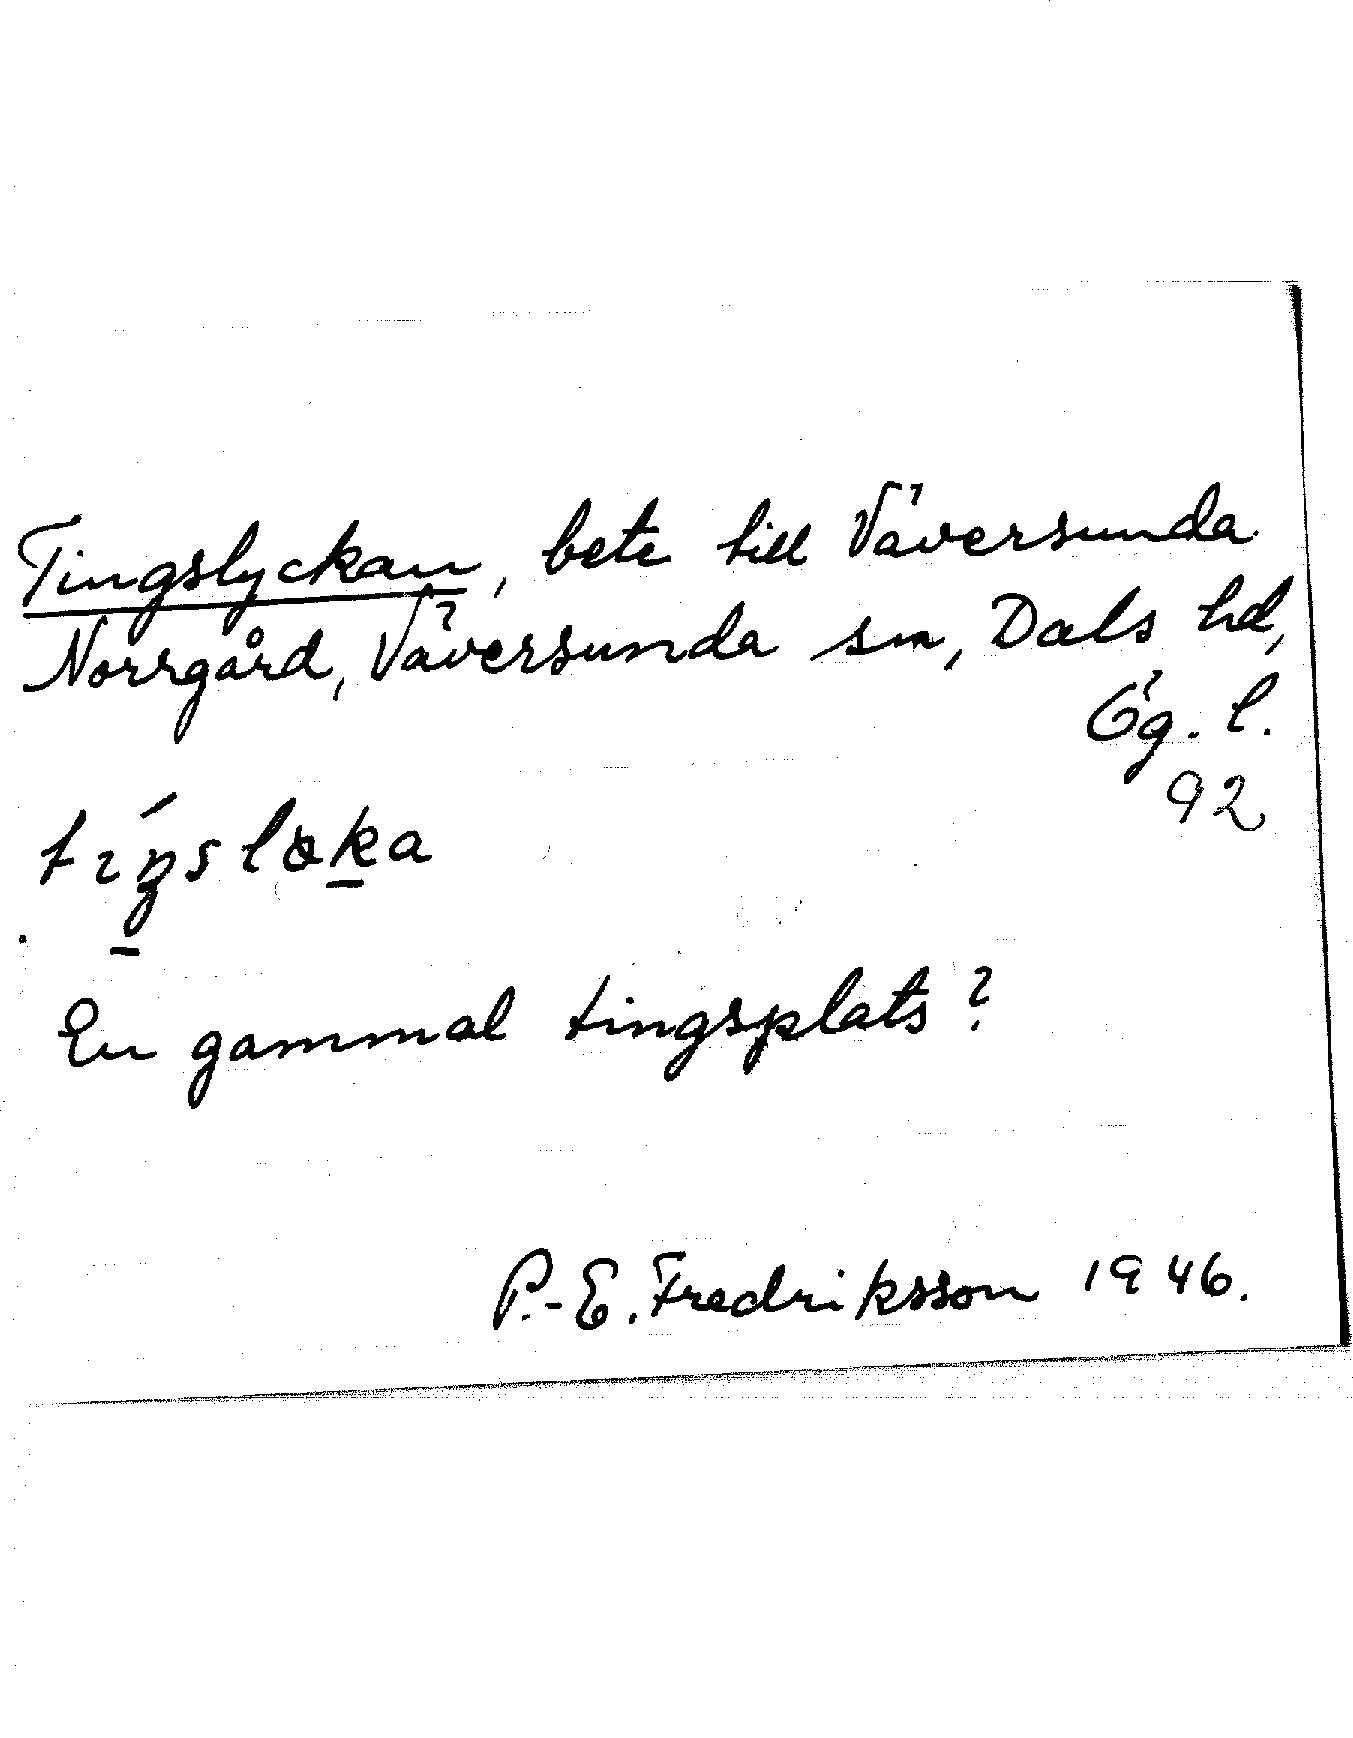 Tingslyckan, bete till Väversunda
Norrgård, Väversunda sn, Dals hd,
Ög. l.
92
En gammal tingsplats?
P.-E. Fredriksson 1946.